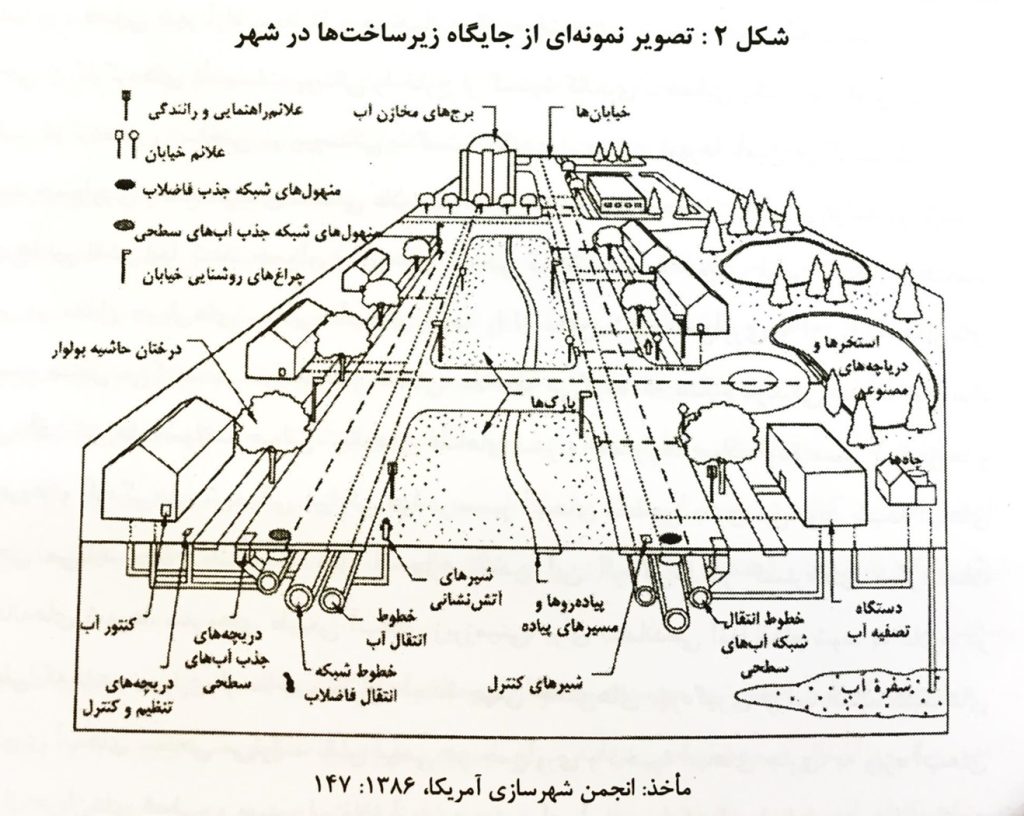 شکل ۲ : تصویر نمونه‌ای از جایگاه زیرساخت‌ها در شهر
علائم راهنمایی و رانندگی
برج‌های مخازن آب
خیابان‌ها
علائم خیابان
منهول‌های شبکه جذب فاضلاب
منهول‌های شبکه جذب آب‌های سطحی
چراغ‌های روشنایی خیابان
درختان حاشیه بولوار
استخرها و
دریاچه‌های
مصنوعی
پارک‌ها
چاه‌ها
شیرهای
آتش‌نشانی
پیاده‌روها و
مسیرهای پیاده
خطوط انتقال
شبکه آب‌های
سطحی
دستگاه
تصفیه آب
کنتور آب
دریچه‌های
جذب آب‌های
سطحی
خطوط
انتقال آب
خطوط شبکه
انتقال فاضلاب
شیرهای کنترل
سفرهٔ آب
دریچه‌های
تنظیم و کنترل
مأخذ: انجمن شهرسازی آمریکا، ۱۳۸۶: ۱۴۷